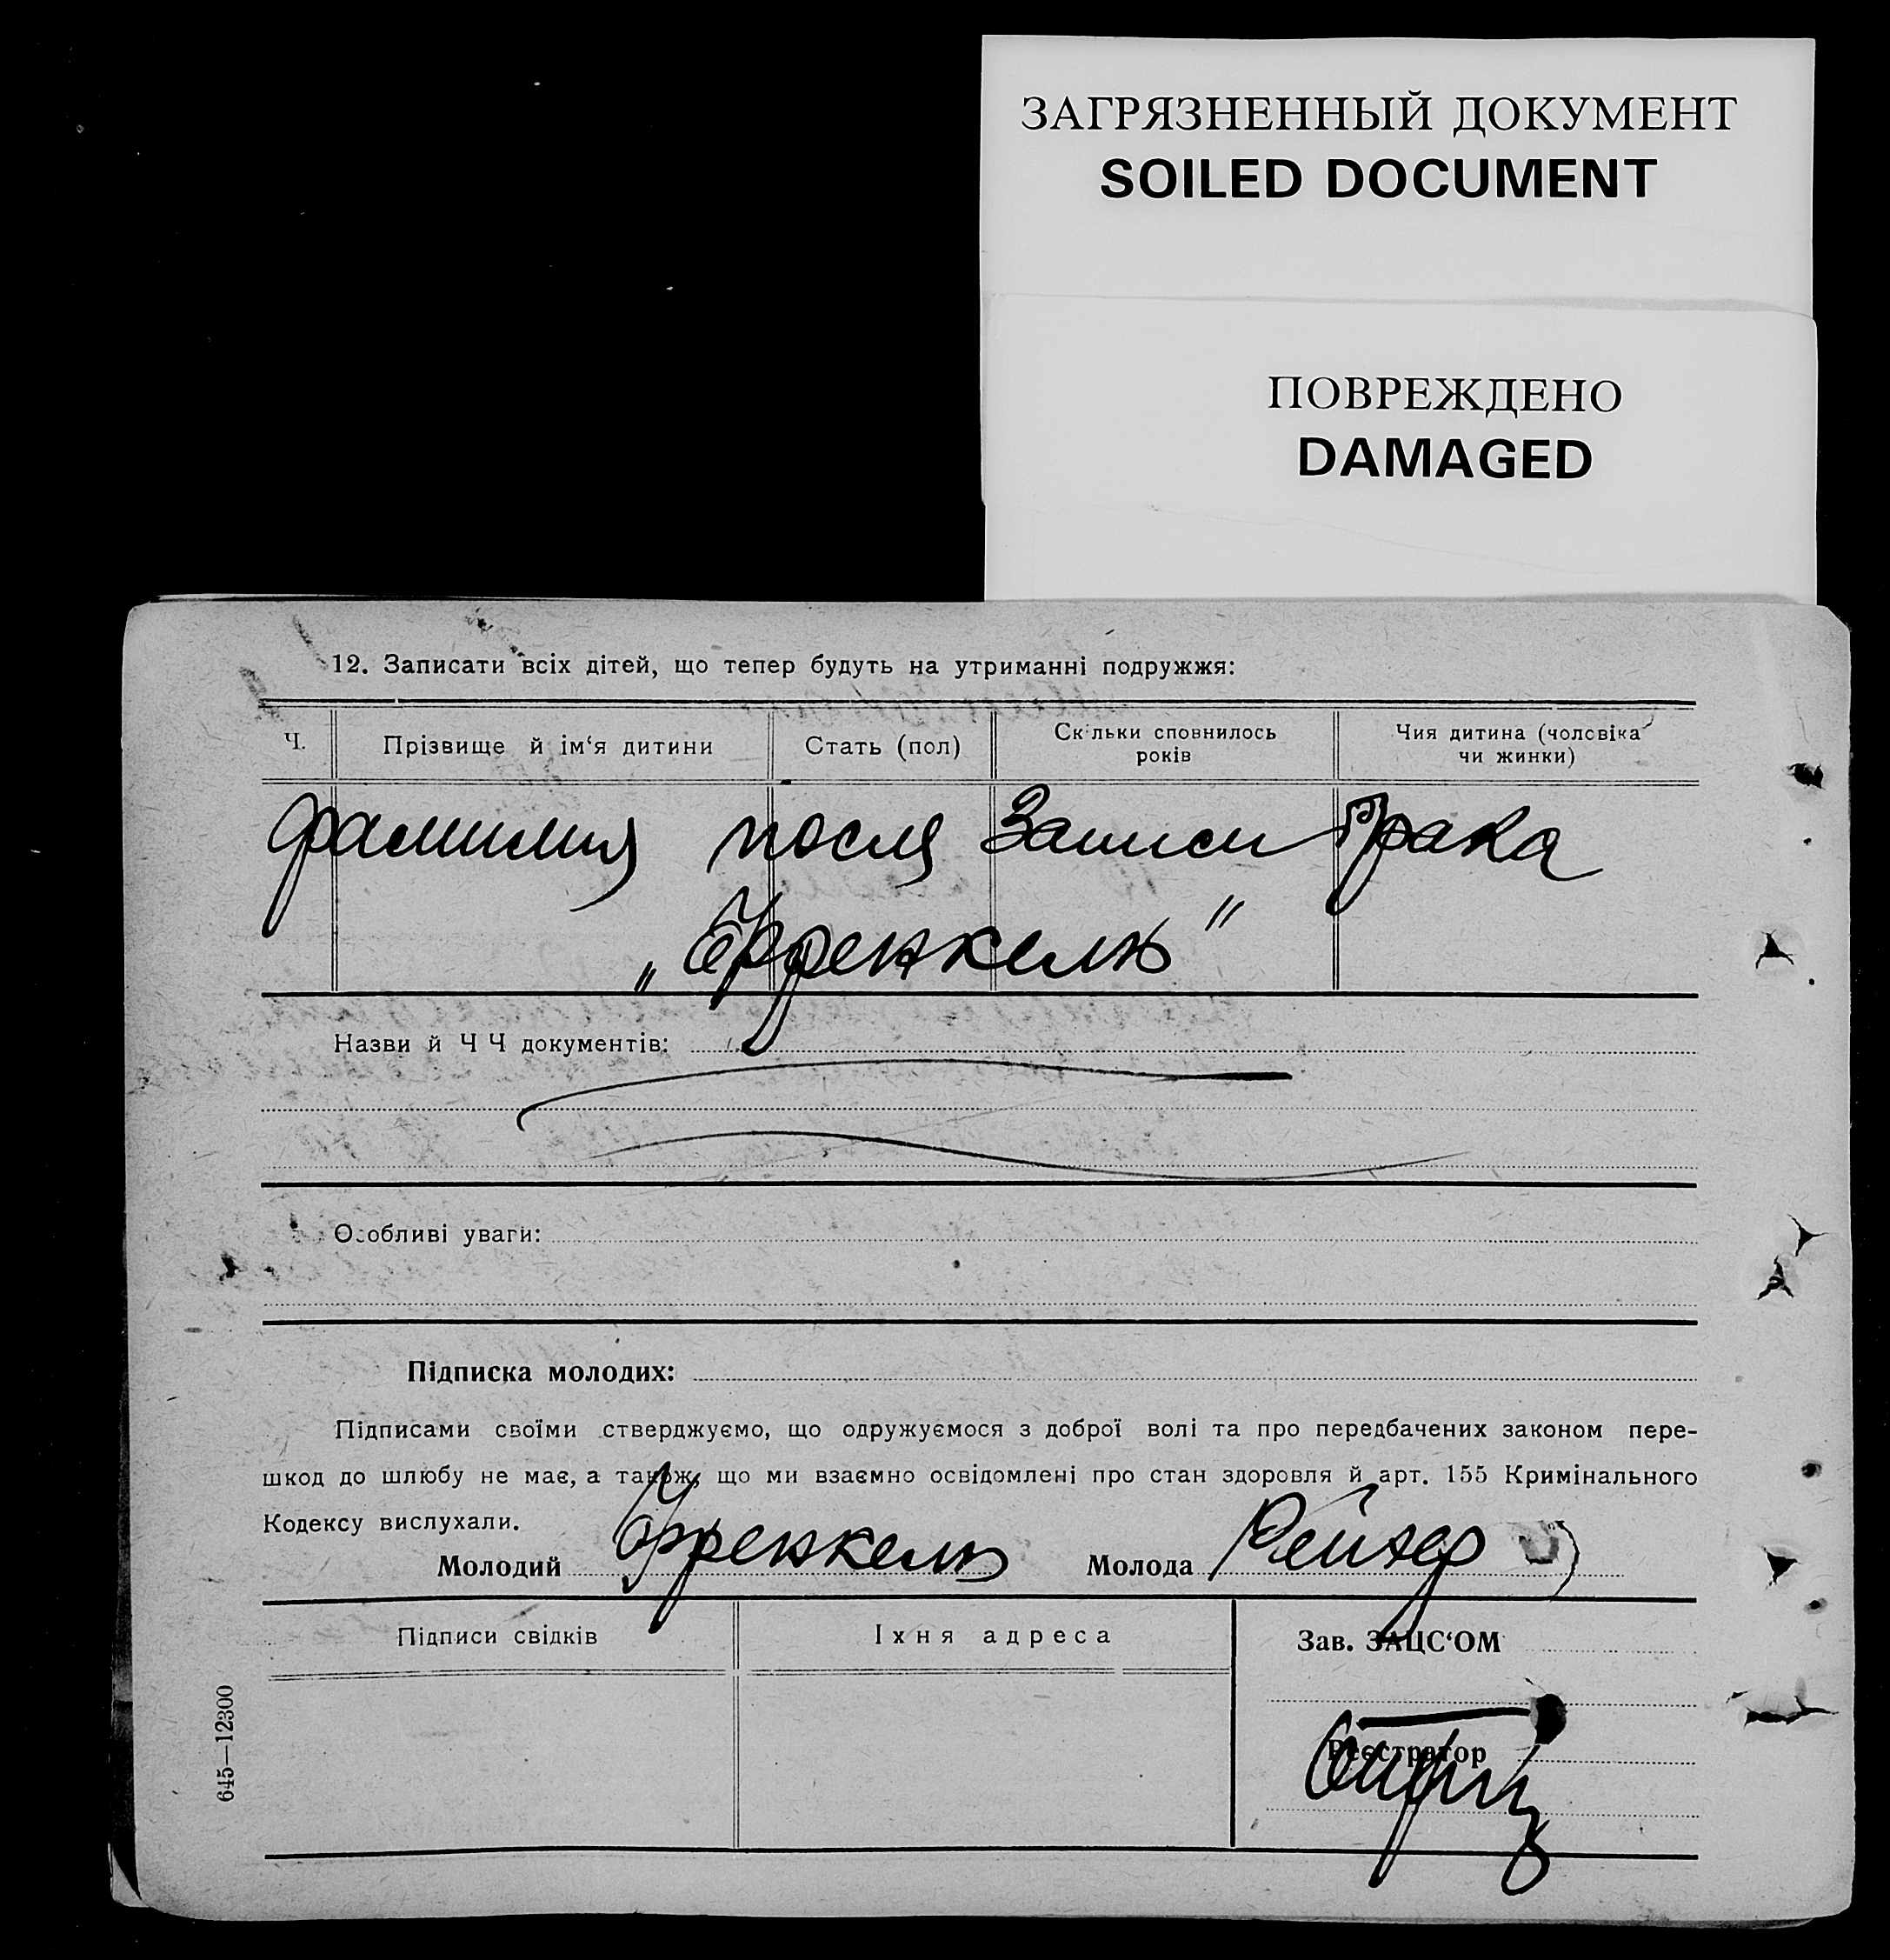 ЗАГРЯЗНЕННЫЙ ДОКУМЕНТ
SOILED DOCUMENT
ПОВРЕЖДЕНО
DAMAGED
12. Записати всіх дітей, що тепер будуть на утриманні подружжя:
Ч. Прізвище й ім‘я дитини Стать (пол) Скільки сповнилось років Чия дитина (чоловіка чи жинки)
фамилия после Записи брака
„Френкель”
Назви й Ч Ч документів:
Особливі уваги:
Підписка молодих:
Підписами своїми стверджуємо, що одружуємося з доброї волі та про передбачених законом пере-
шкод до шлюбу не має, а також, що ми взаємно освідомлені про стан здоровля й арт. 155 Кримінального
Кодексу вислухали.
Молодий Френкель Молода Рейдер
Підписи свідків Їхня адреса Зав. ЗАЦС‘ОМ
Реєстратор
645—12300